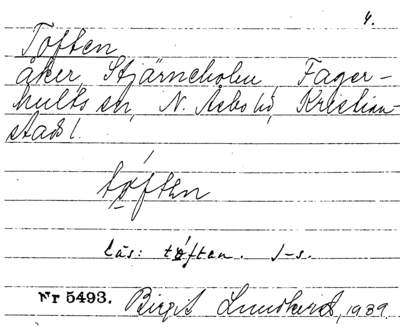 4.
Toften
åker, Stjärneholm, Fager-
hults sn, N. Åsbo hd, Kristian-
stads l.
tøften
läs: tøften. J-s.
Nr 5493. Birgit Lundkvist, 1939.